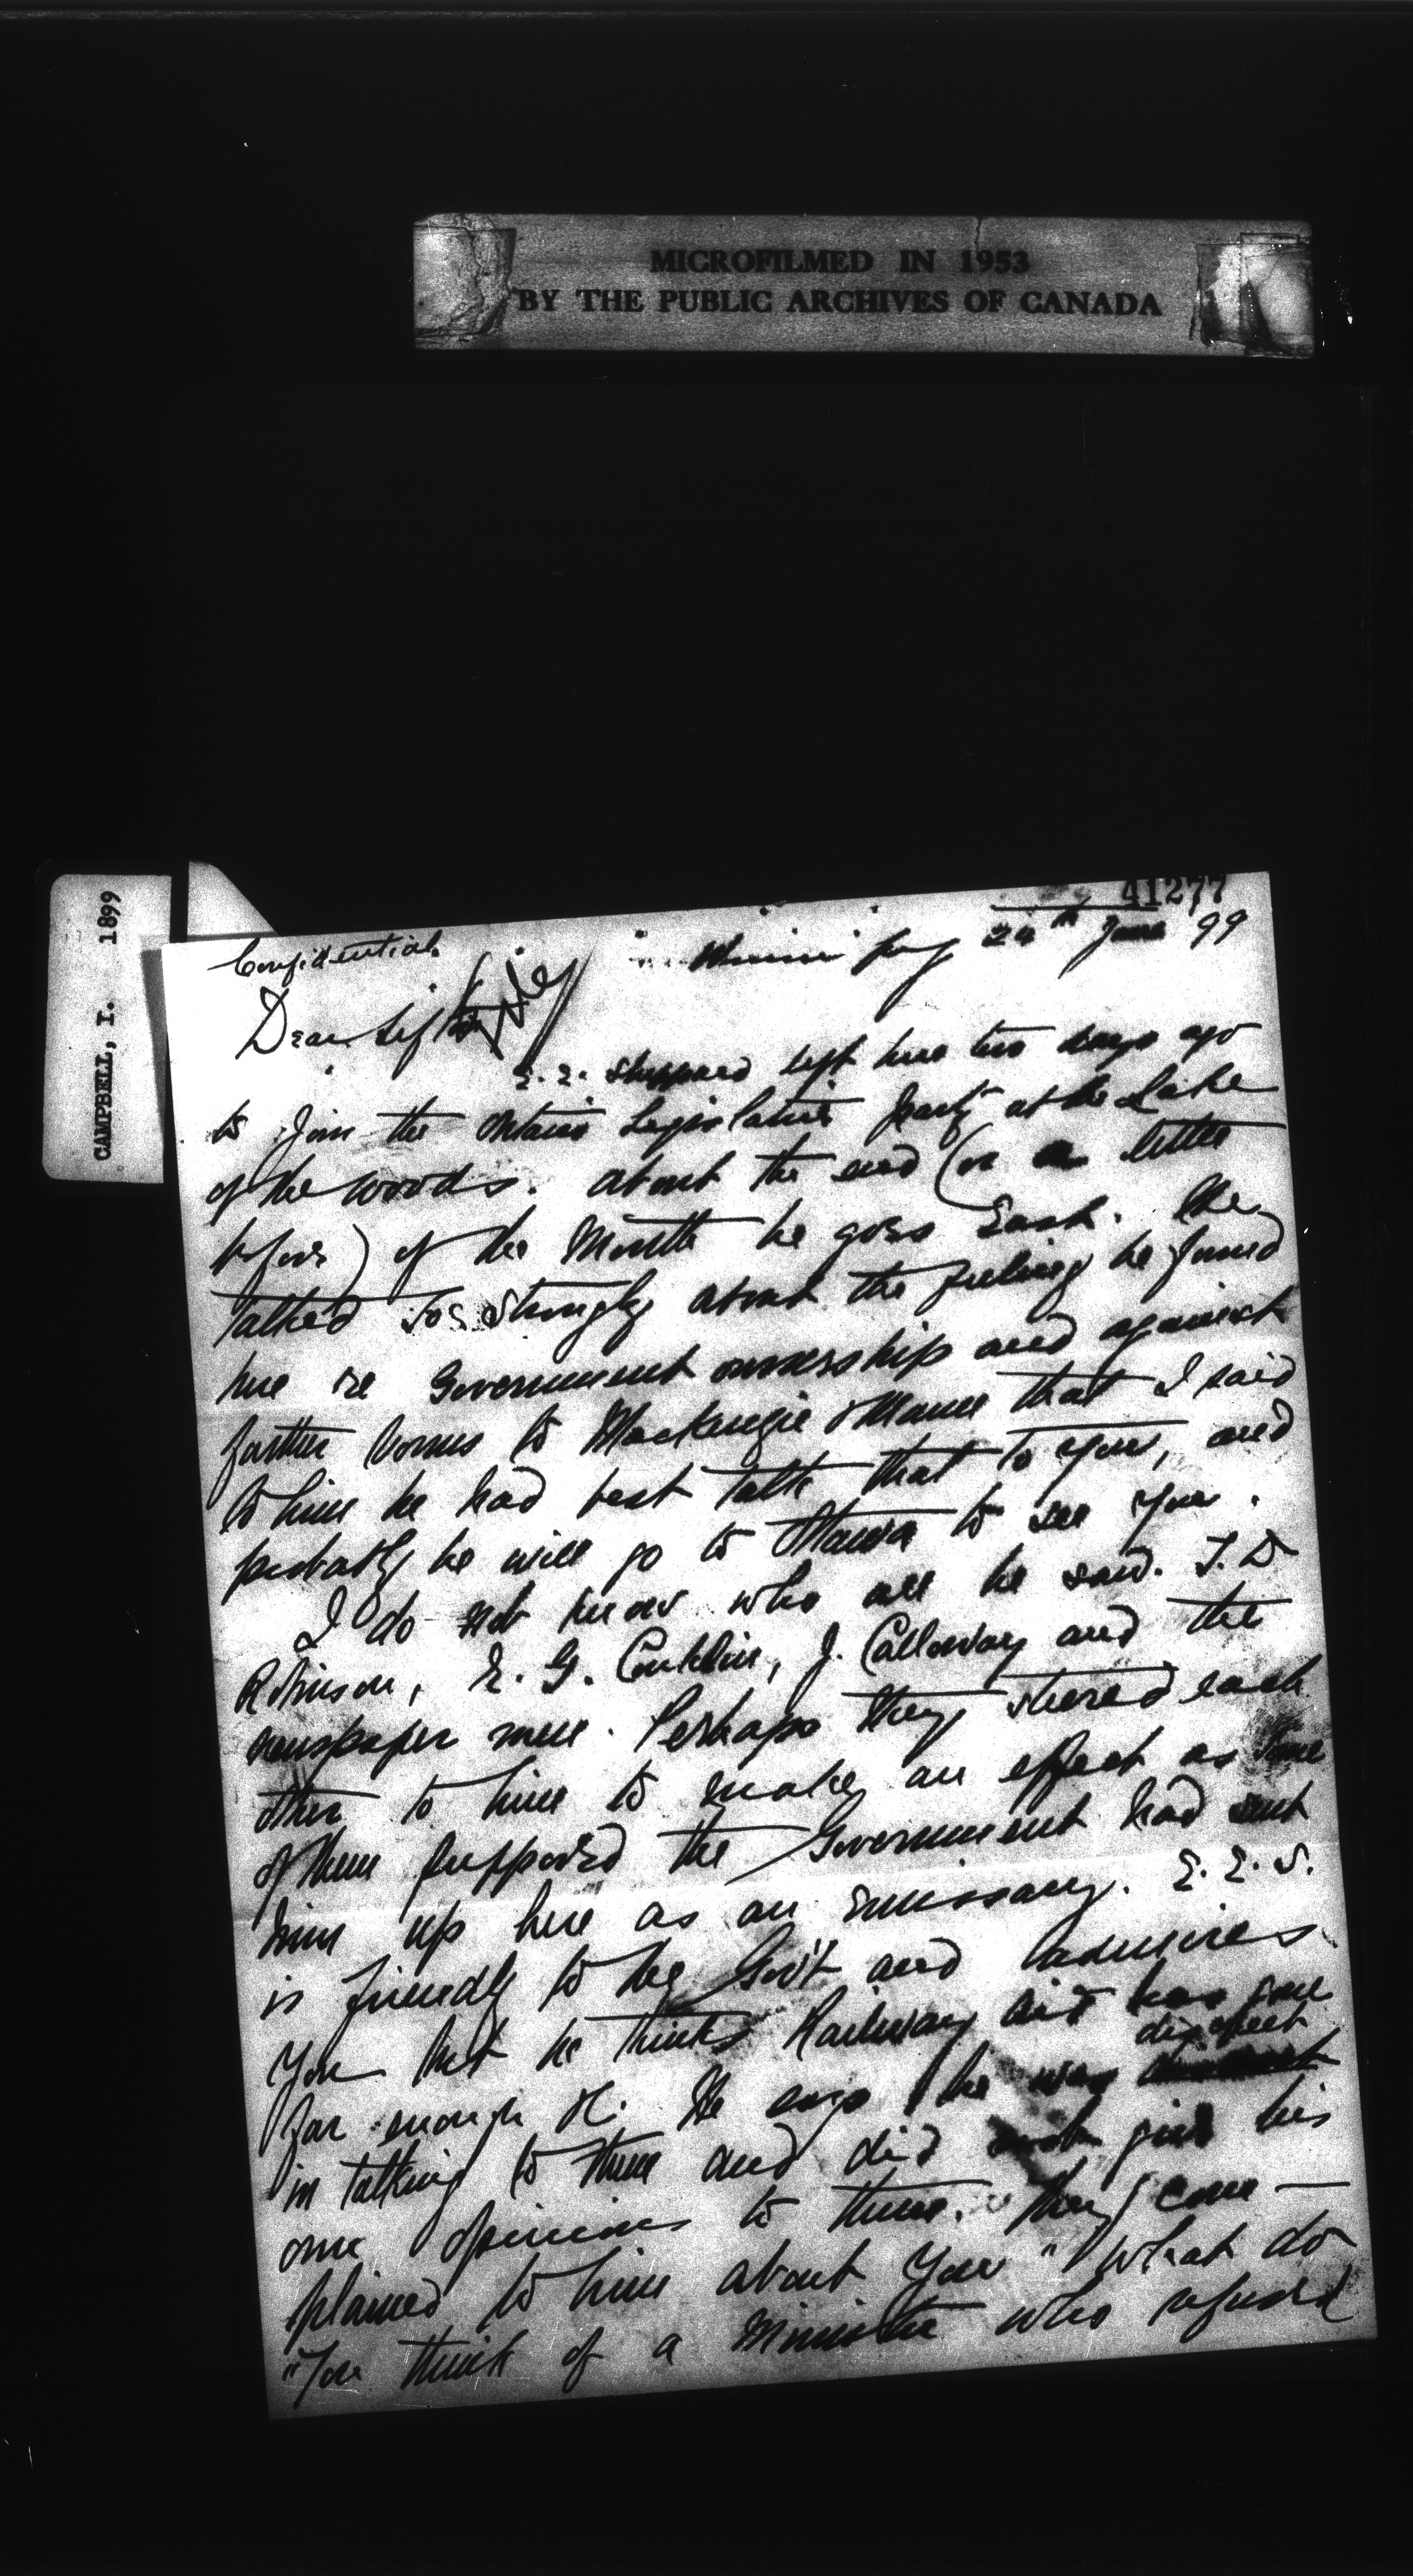 MICROFILMED IN 1953
BY THE PUBLIC ARCHIVES OF CANADA
CAMPBELL, I. 1899
41277
Confidential
Winnipeg 24th June 99
Dear Sifton
E. E. Sheppard left here two days ago
to join the Ontario Legislative party at the Lake
of the Woods. About the end (or a little
before) of the Month he goes East. He
talked so strongly about the feeling he found
here re Government ownership and against
further bonus to Mackenzie & Mann that I said
to him he had best talk that to you, and
probably he will go to Ottawa to see you.
I do not know who all he saw. J. D
Robinson, E. G. Conklin, J. Calloway and the
newspaper men. Perhaps they steered each
other to him to make an effect as some
of them supposed the Government had sent
him up here as an emissary. E. E. S.
is friendly to the Gov't and admires
you but he thinks Railway aid has gone
far enough &c. He says he was discreet
in talking to them and did not give his
own opinions to them. They com-
plained to him about you "What do
"you think of a Minister who refused